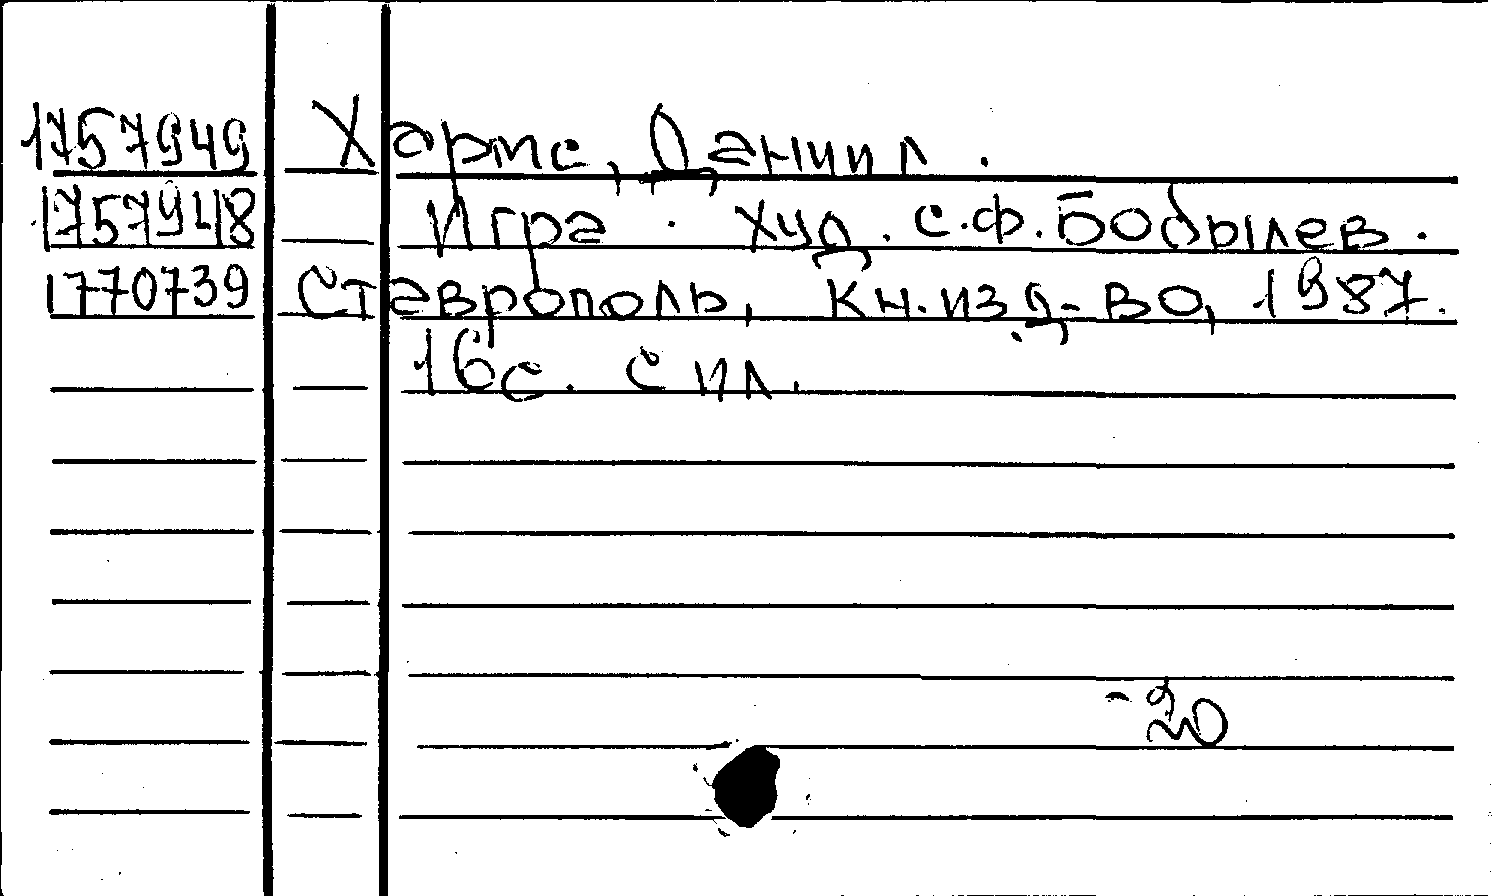 1757949 Хармс, Даниил.
1757948 Игра. Худ. С.Ф. Бобылев.
1770739 Ставрополь, Кн. изд-во, 1987.
16с. с ил.
-20